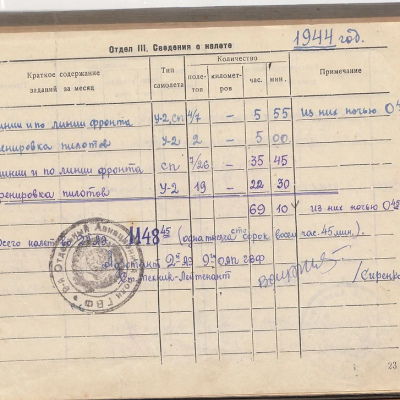 Отдел III. Сведения о налете 1944 год.
Краткое содержание заданий за месяц
Тип самолета
Количество
поле-тов
километ-ров
час.
мин.
Примечание
инии и по линии фронта У-2, СП 4/7 — 5 55 Из них ночью 0
енировка пилотов У-2 2 — 5 00
инии и по линии фронта СП 7/26 — 35 45
енировка пилотов У-2 19 — 22 30
69 10 из них ночью
сего налет 1148 45 (одна тысяча сто сорок восем час. 45 мин.).
2й АЭ 9й ОАП ГВФ
Ст. Техник-Лейтенант /Сиренко
23